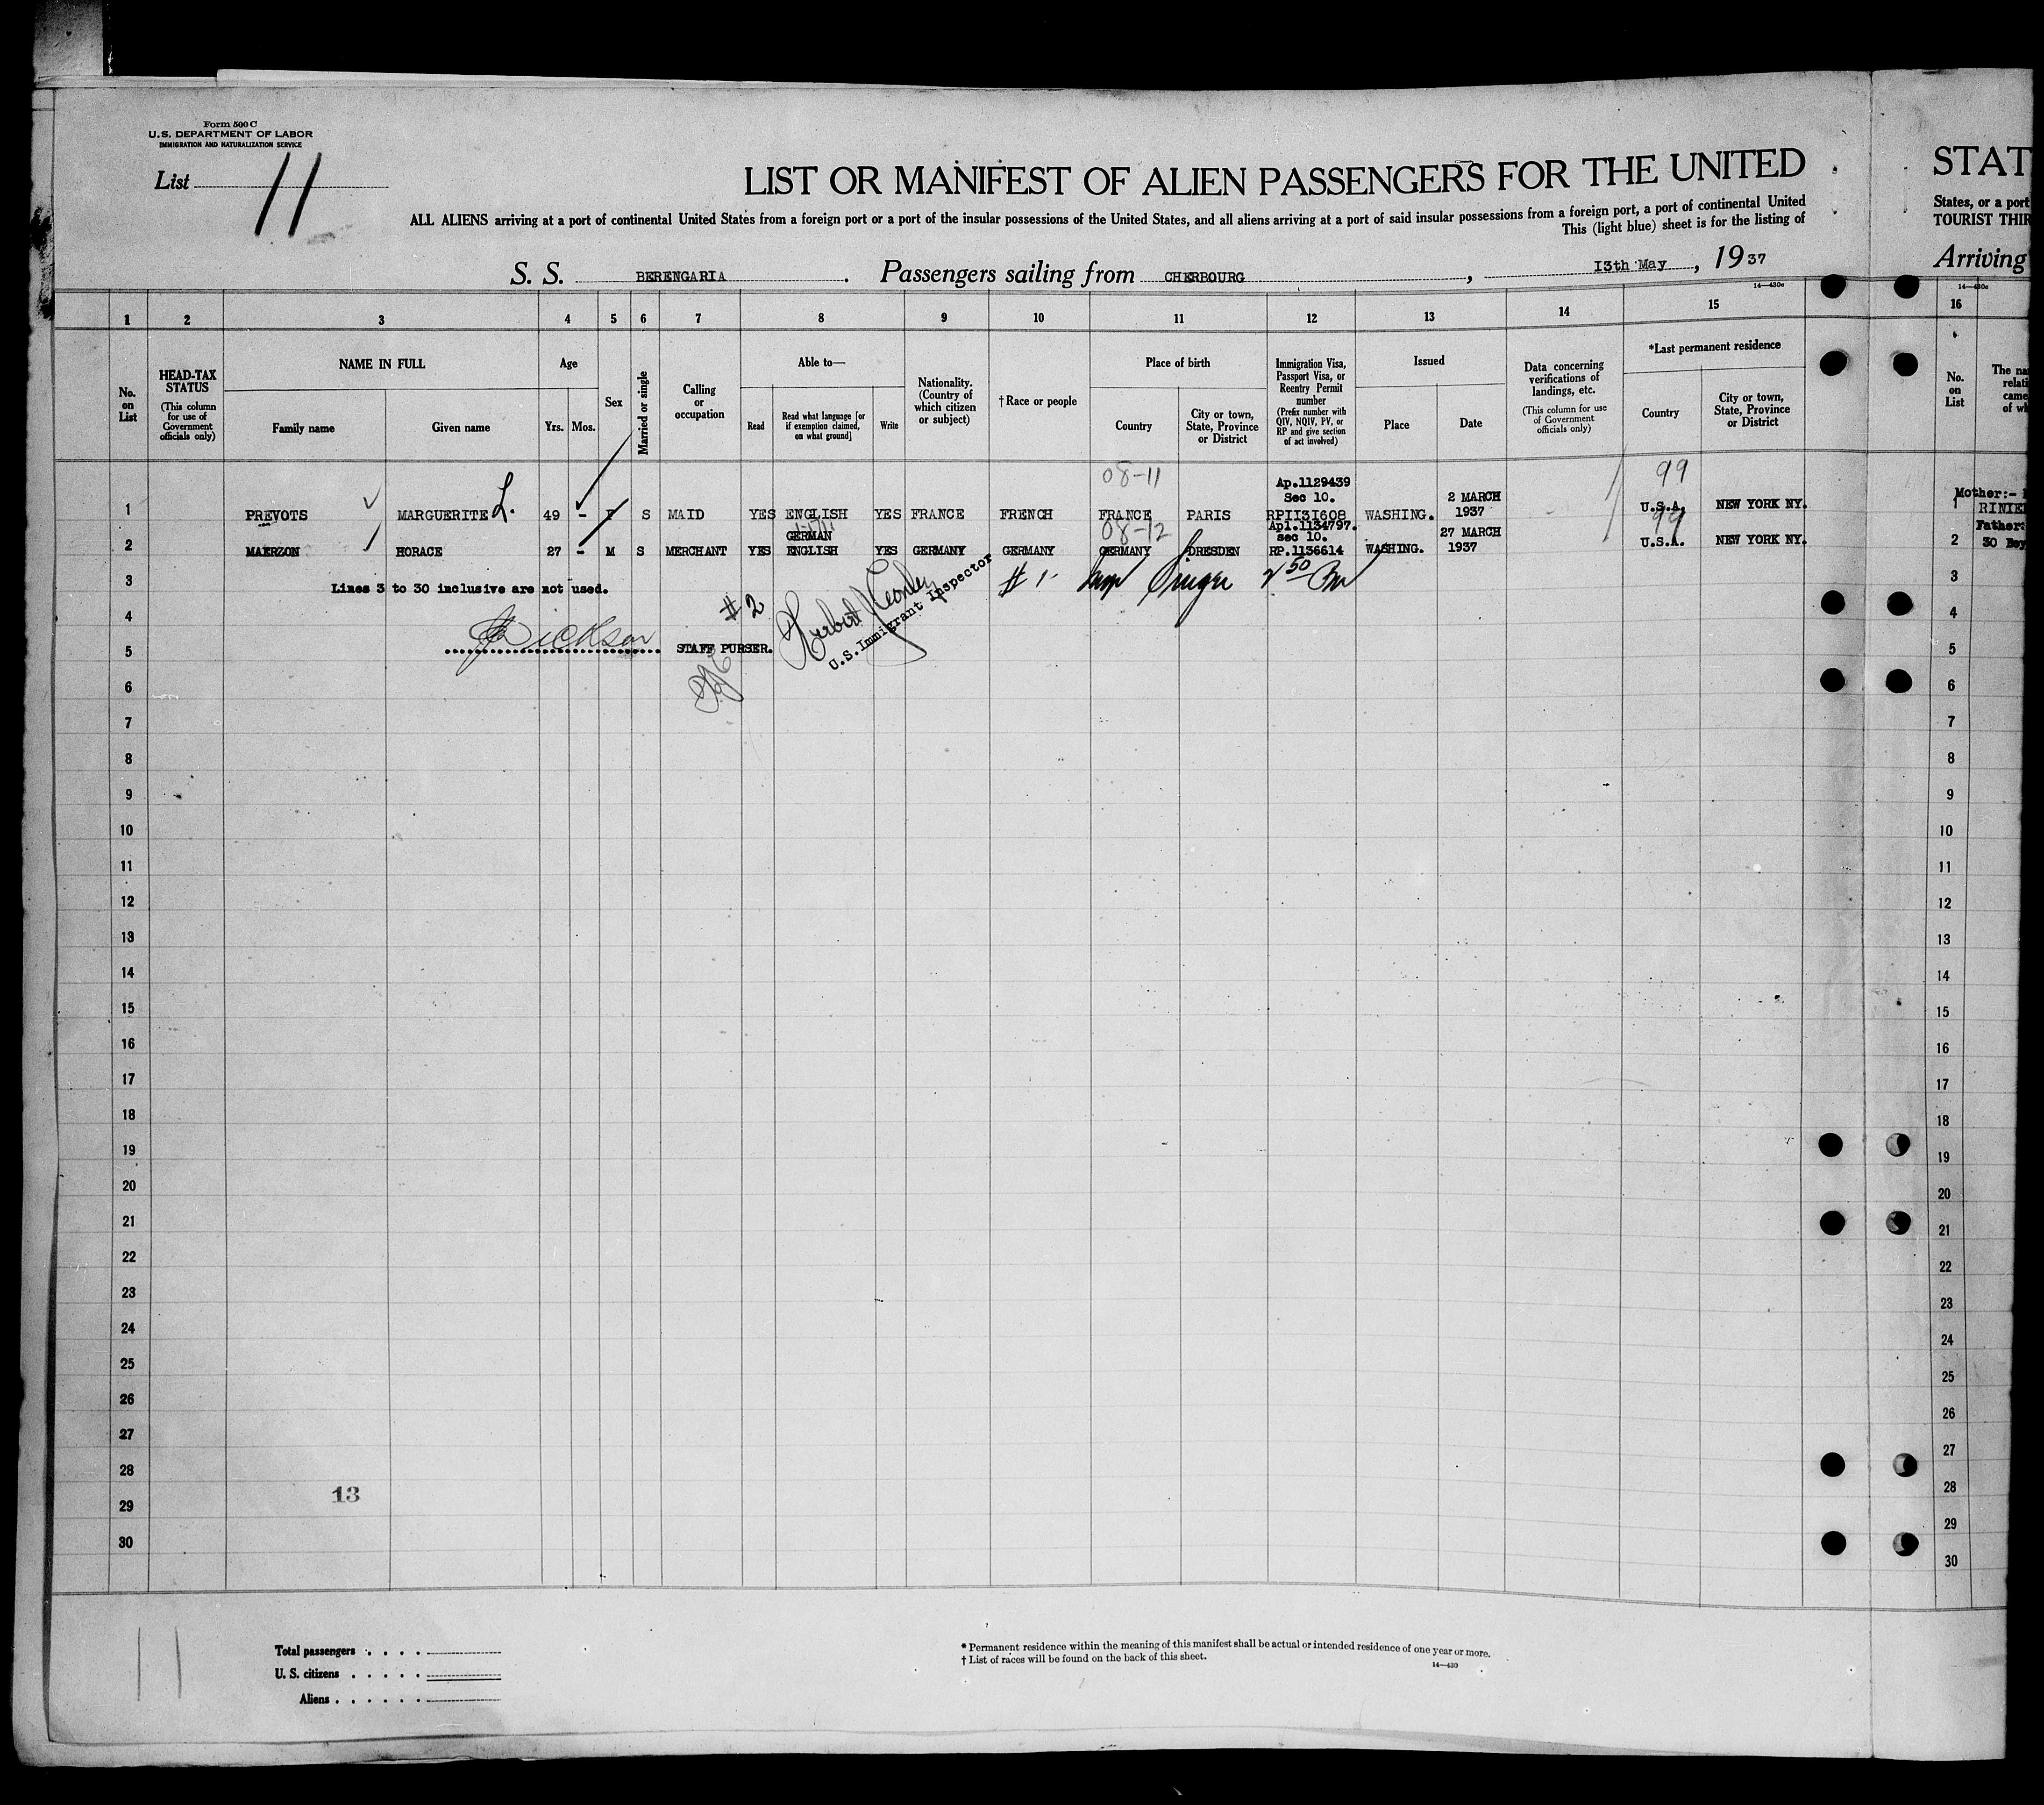 Form 500 C
U.S. DEPARTMENT OF LABOR
IMMIGRATION AND NATURALIZATION SERVICE
List 11
LIST OR MANIFEST OF ALIEN PASSENGERS FOR THE UNITED
STAT
ALL ALIENS arriving at a port of continental United States from a foreign port or a port of the insular possessions of the United States, and all aliens arriving at a port of said insular possessions from a foreign port, a port of continental United
States, or a port
This (light blue) sheet is for the listing of
TOURIST THIR
S. S. BERENGARIA. Passengers sailing from CHERBOURG, 13th May, 1937
Arriving
14—430c
14—430c
1 2 3 4 5 6 7 8 9 10 11 12 13 14 15 16
No. on List
HEAD-TAX STATUS (This column for use of Government officials only)
NAME IN FULL
Family name
Given name
Age
Yrs. Mos.
Sex
Married or single
Calling or occupation
Able to—
Read
Read what language [or if exemption claimed, on what ground]
Write
Nationality. (Country of which citizen or subject)
†Race or people
Place of birth
Country
City or town, State, Province or District
Immigration Visa, Passport Visa, or Reentry Permit number (Prefix number with QIV, NQIV, PV, or RP and give section of act involved)
Issued
Place
Date
Data concerning verifications of landings, etc. (This column for use of Government officials only)
*Last permanent residence
Country
City or town, State, Province or District
No. on List
08-11
99
Ap.1129439
Sec 10.
2 MARCH
Mother:-
1 PREVOTS MARGUERITE L. 49 - F S MAID YES ENGLISH YES FRANCE FRENCH FRANCE PARIS RPII3I608 WASHING. 1937 U.S.A. NEW YORK NY. 1
08-12
99
Apl.1134797.
GERMAN
sec 10.
27 MARCH
Father:
2 MAERZON HORACE 27 - M S MERCHANT YES ENGLISH YES GERMANY GERMANY GERMANY DRESDEN RP.1136614 WASHING. 1937 U.S.A. NEW YORK NY. 2 30
3 Lines 3 to 30 inclusive are not used. 3
#2
4 4
5 STAFF PURSER. U.S. Immigrant Inspector 5
6 6
7 7
8 8
9 9
10 10
11 11
12 12
13 13
14 14
15 15
16 16
17 17
18 18
19 19
20 20
21 21
22 22
23 23
24 24
25 25
26 26
27 27
28 28
13
29 29
30 30
11
Total passengers
U. S. citizens
Aliens
* Permanent residence within the meaning of this manifest shall be actual or intended residence of one year or more.
† List of races will be found on the back of this sheet.
14—430